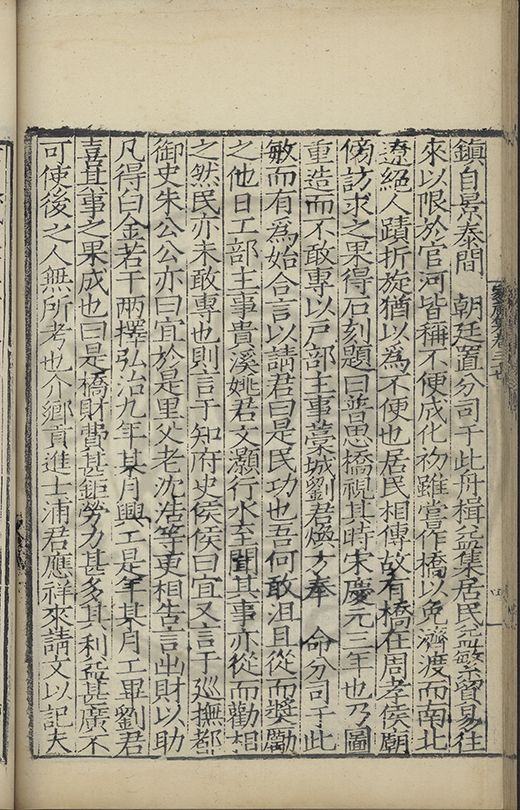 鎮自景泰間　朝廷置分司于此舟楫益集居民益繁貿易往
來以限於官河皆稱不便成化初雖嘗作橋以免濟渡而南北
遼絕人蹟折旋猶以為不便也居民相傳故有橋在周孝侯廟
傍訪求之果得石刻題曰普思橋視其時宋慶元三年也乃圖
重造而不敢專以戶部主事蒙城劉君煥方奉　命分司于此
敏而有為始合言以請君曰是民功也吾何敢沮且從而奬勵
之他日工部主事貴溪姚君文灝行水至聞其事亦從而勸相
之然民亦未敢專也則言于知府史侯侯曰宜又言于巡撫都
御史朱公公亦曰宜於是里父老沈浩等更相告言出財以助
凡得白金若干兩擇弘治九年某月興工是年某月工畢劉君
喜其事之果成也曰是橋財費甚鉅勞力甚多其利益甚廣不
可使後之人無所考也介鄉貢進士浦君應祥來請文以記夫
家藏集卷三